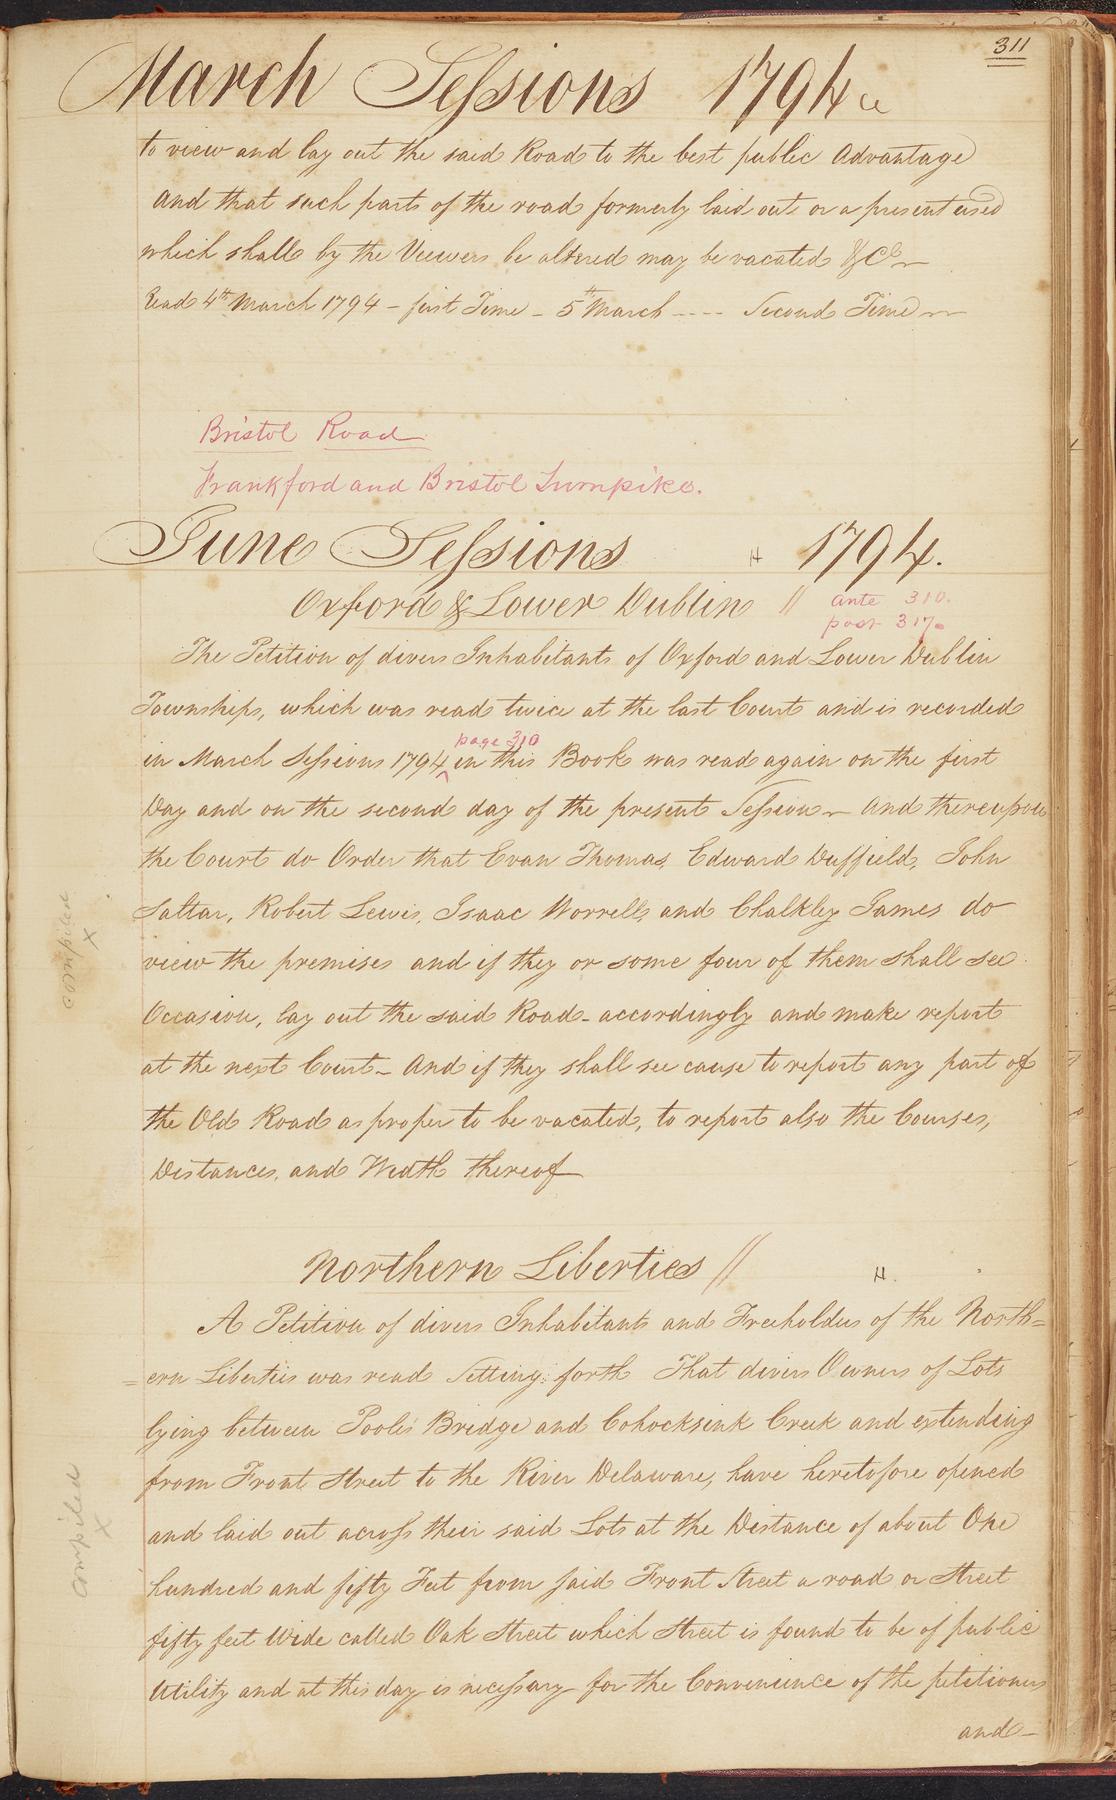 311
March Sessions 1794
to view and lay out the said Road to the best public Advantage
And that such parts of the road formerly laid out or a present used
which shall by the Viewers be altered may be vacated &Ca
read 4th March 1794 - first Time - 5th March ---- Second Time
Bristol Road
Frankford and Bristol Turnpike.
June Sessions H 1794.
Oxford & Lower Dublin // ante 310.
post 317.
The Petition of divers Inhabitants of Oxford and Lower Dublin
Townships, which was read twice at the last Court and is recorded
page 310
in March Sessions 1794 ^ in this Book was read again on the first
Day and on the second day of the present Session - And thereupon
the Court do Order that Evan Thomas, Edward Duffield, John
Saltar, Robert Lewis, Isaac Worrell, and Chalkley James do
compiled
x
view the premises and if they or some four of them shall see
Occasion, lay out the said Road - accordingly and make report
at the next Court - And if they shall see cause to report any part of
the Old Road as proper to be vacated, to report also the Courses,
Distances, and Width thereof
Northern Liberties // H.
A Petition of divers Inhabitants and Freeholders of the North=
=ern Liberties was read Setting forth That divers Owners of Lots
lying between Pooles Bridge and Cohocksink Creek and extending
from Front Street to the River Delaware, have heretofore opened
compiled
x
and laid out across their said Lots at the Distance of about One
hundred and fifty Feet from said Front Street a road or Street
fifty feet Wide called Oak Street which Street is found to be of public
Utility and at this day is necessary for the Convenience of the petitioners
and -